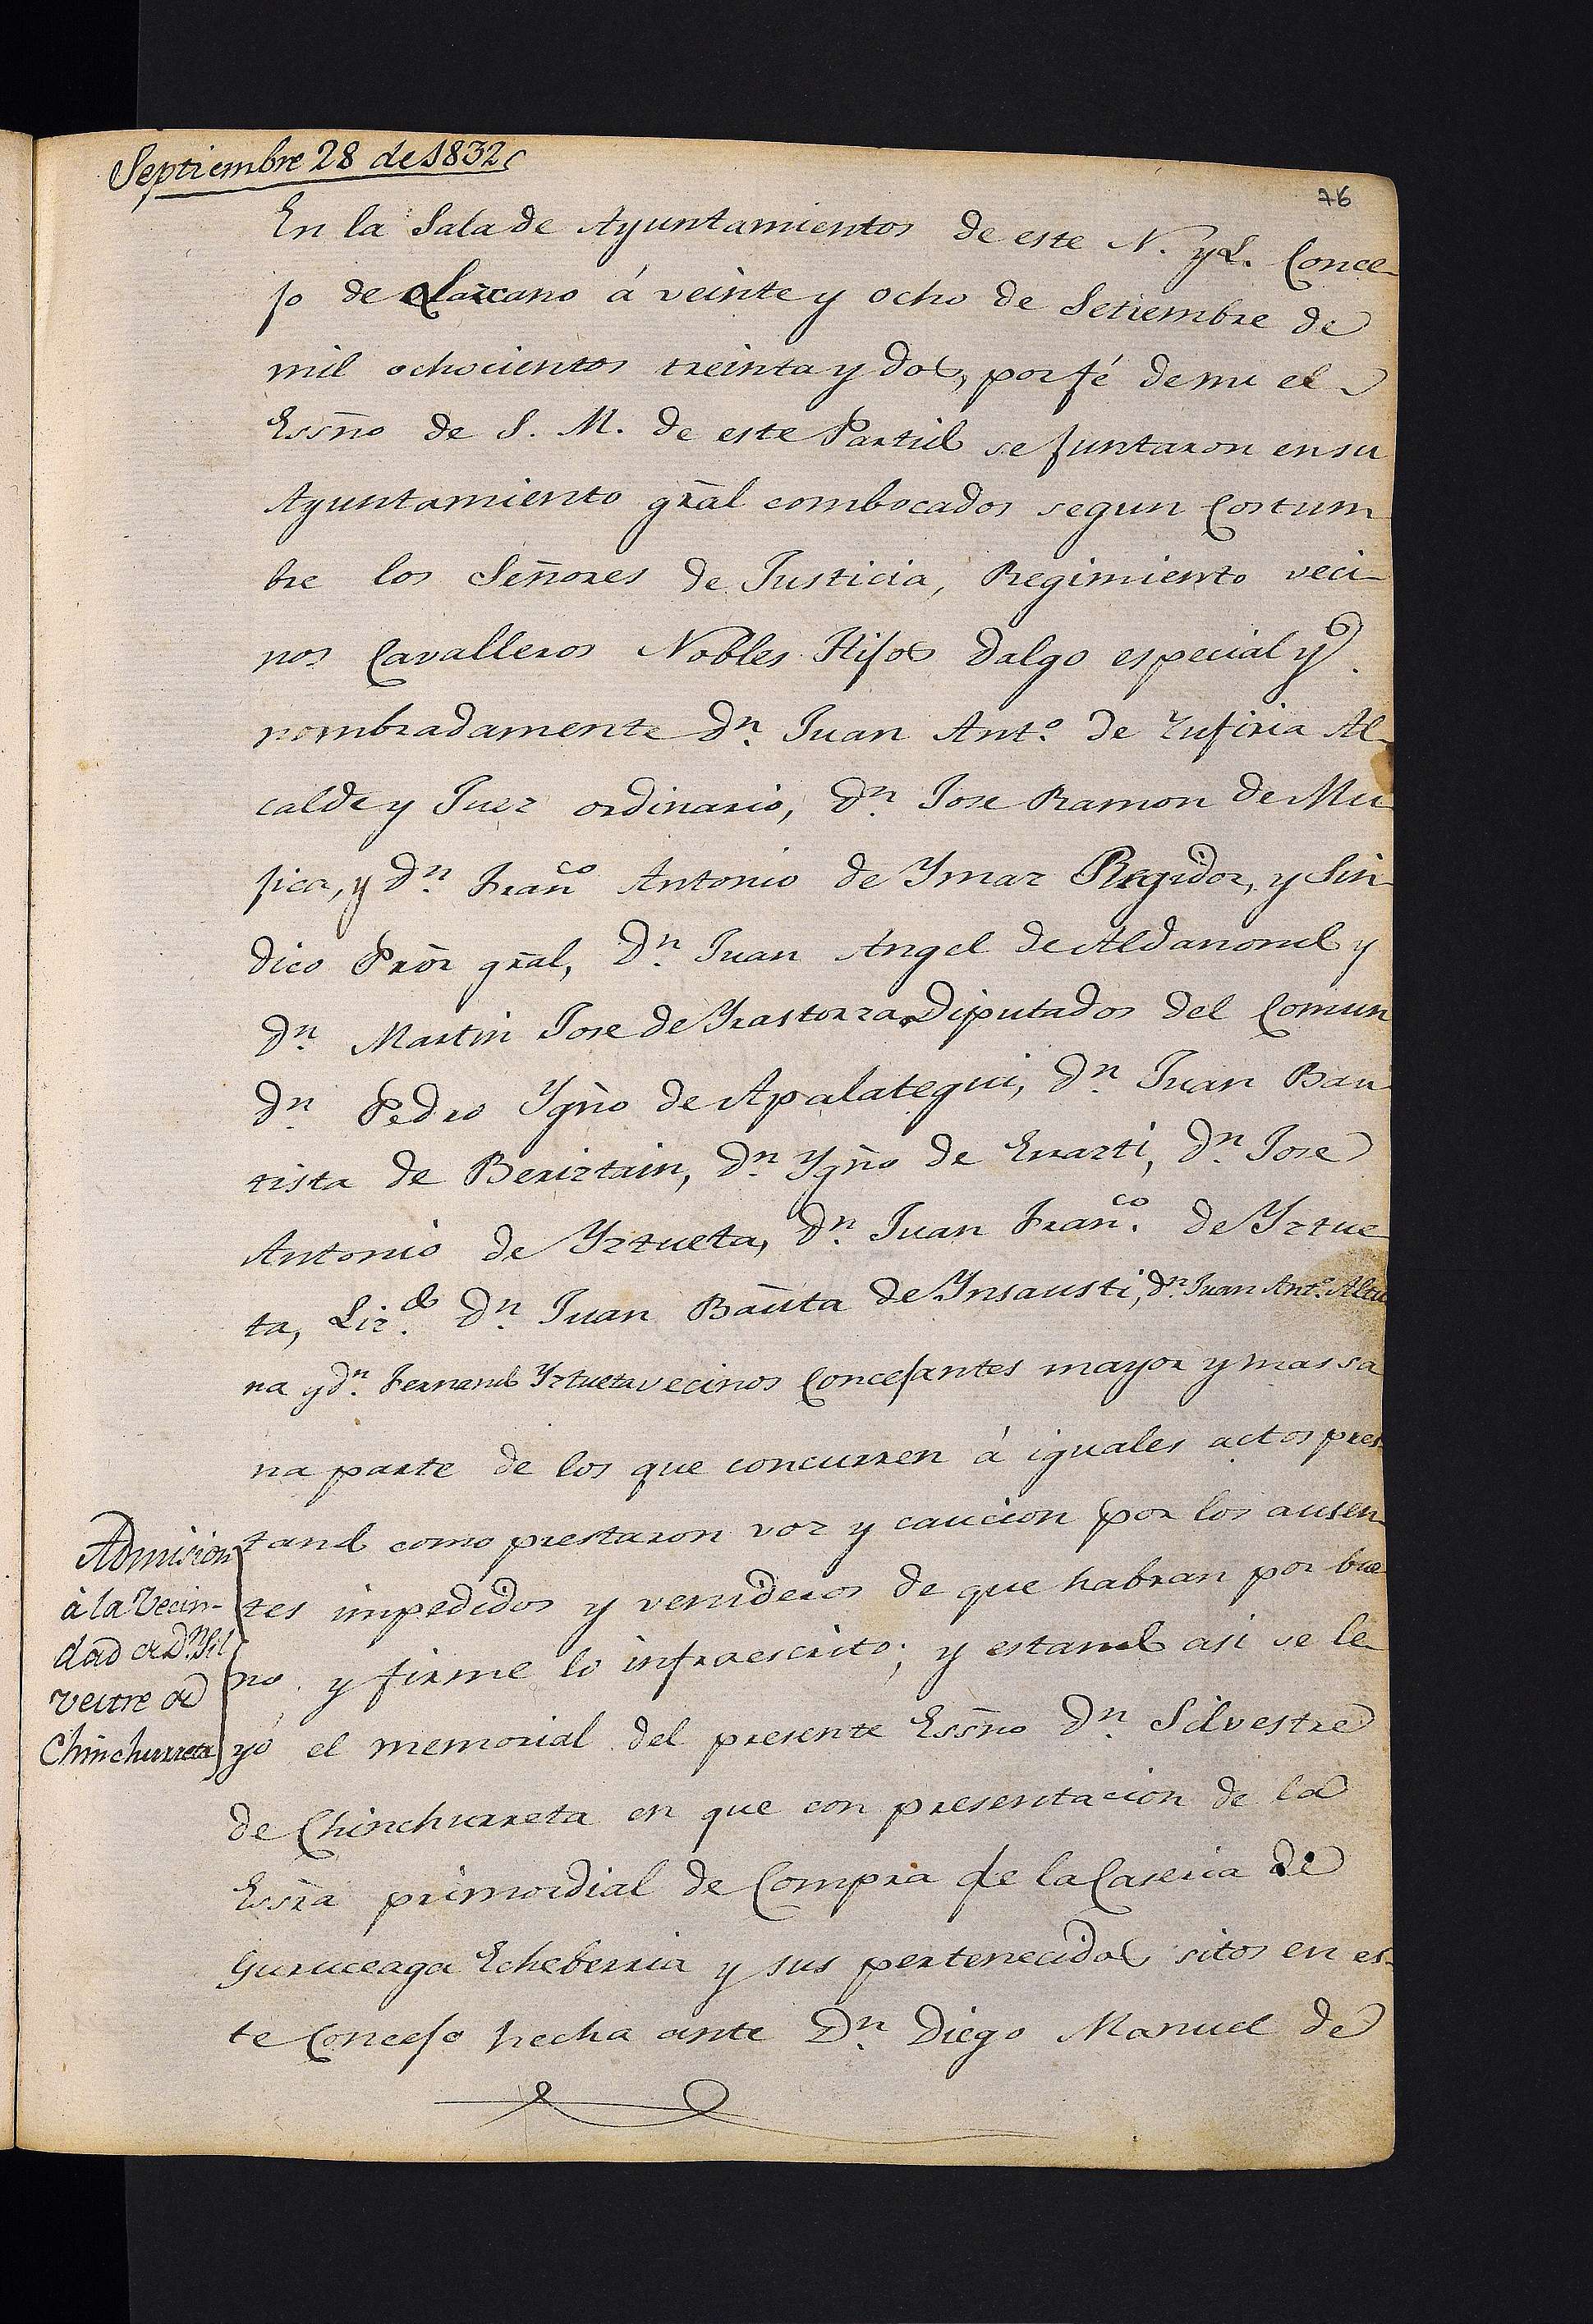 Septiembre 28 de 1832
76
En la Sala de Ayuntamientos de este N. y L. Conce-
jo de Lazcano á veinte y ocho de Setiembre de
mil ochocientos treinta y dos, por fé de mi el
Essño de S. M. de este Partido se juntaron en su
Ayuntamiento gral combocados segun Costum
bre los Señores de Justicia, Regimiento veci-
nos Cavalleros Nobles Hijos dalgo especial y
nombradamente Dn. Juan Anto. de Zufiria Al-
calde y Juez ordinario, Dn. Jose Ramon de Mu
jica, y Dn. Franco Antonio de Ymaz Regidor, y Sin
dico Prõr gral, Dn. Juan Angel de Aldanondo y
Dn. Martin Jose de Yrastorza Diputados del Comun
Dn. Pedro Ygño de Apalategui, Dn. Juan Bau
tista de Beriztain, Dn. Ygño de Errazti, Dn. Jose
Antonio de Yztueta, Dn. Juan Franco. de Yztue
ta, Lizdo. Dn. Juan Bauta de Ynsausti, Dn. Juan Anto. Altu
na y Dn. Fernando Yztueta vecinos Concejantes mayor y mas sa
na parte de los que concurren á iguales actos pres
tando como prestaron voz y caucion por los ausen
tes impedidos y venideros de que habran por bue
no y firme lo infraescrito; y estando asi se le
yó el memorial del presente Essño Dn. Silvestre
de Chinchurreta en que con presentacion de la
Essra primordial de Compra de la Caseria de
Guruceaga Echeberria y sus pertenecidos sitos en es-
te Concejo hecha ante Dn. Diego Manuel de
Admision
à la Vecin-
dad de Dn. Sil
vestre de
Chinchurreta